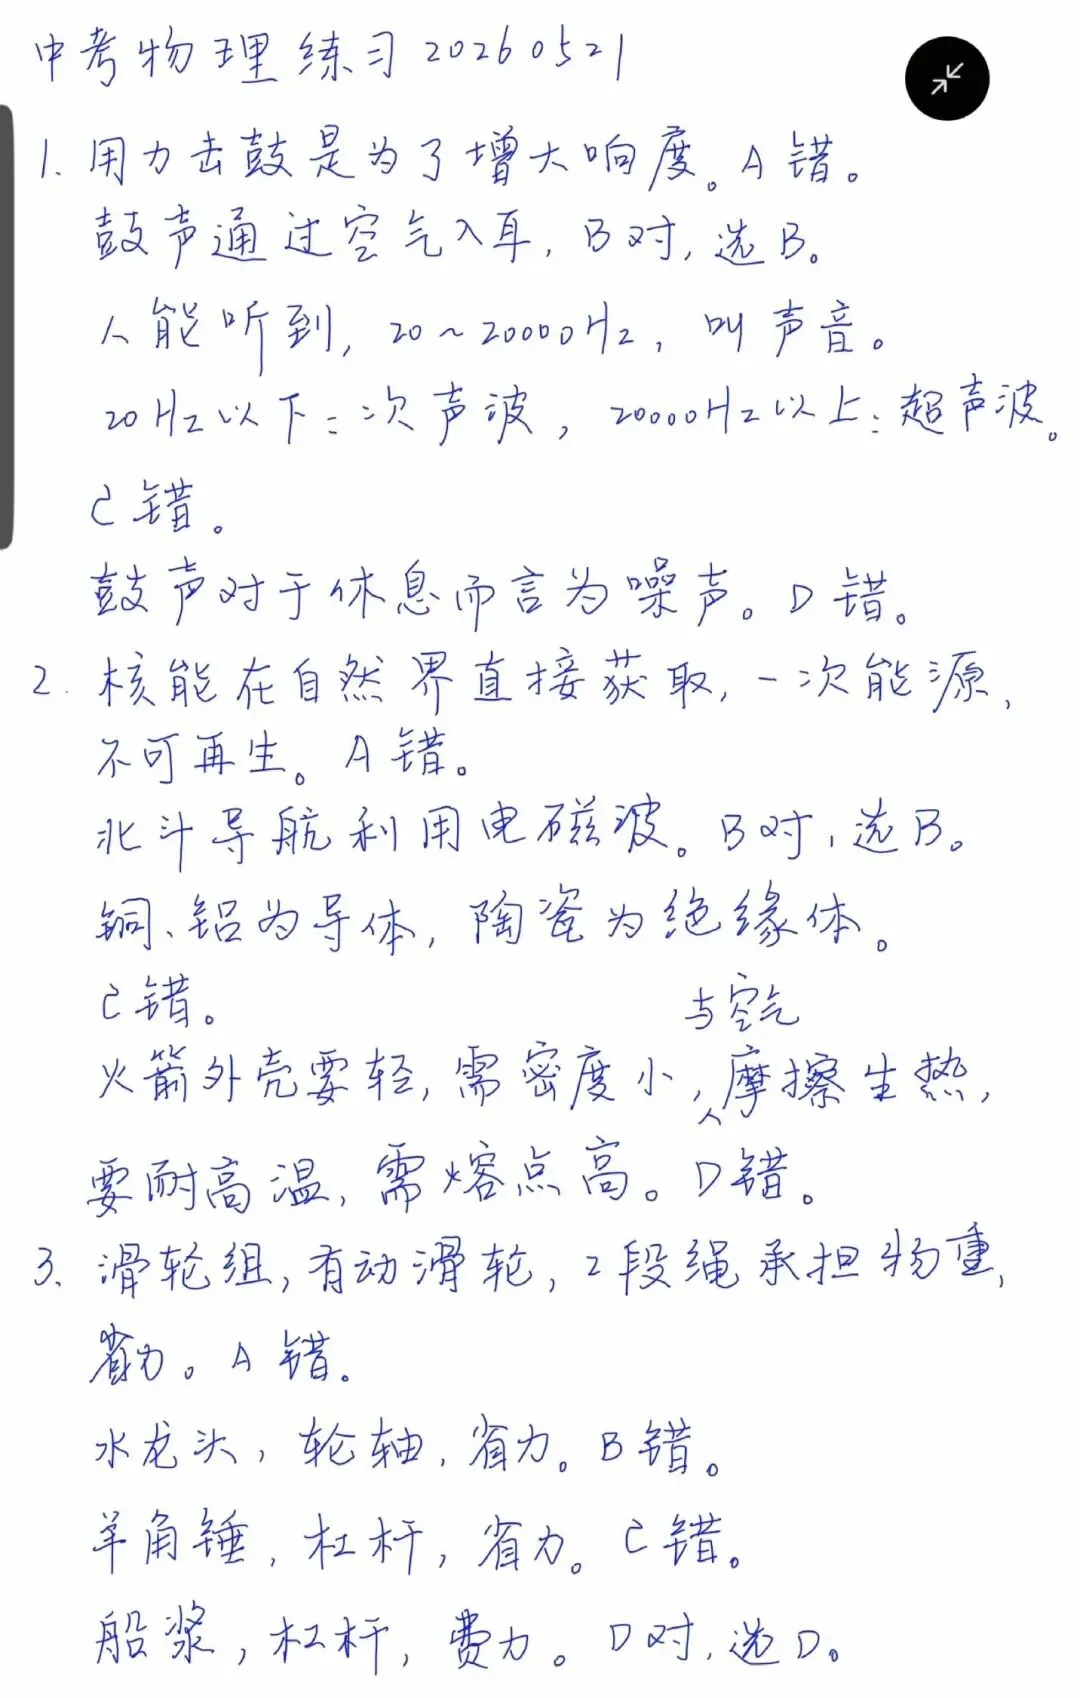 中考物理练习20260521
1. 用力击鼓是为了增大响度。A错。
鼓声通过空气入耳,B对,选B。
人能听到,20~20000Hz,叫声音。
20Hz以下:次声波,20000Hz以上:超声波。
C错。
鼓声对于休息而言为噪声。D错。
2. 核能在自然界直接获取,一次能源,
不可再生。A错。
北斗导航利用电磁波。B对,选B。
铜、铝为导体,陶瓷为绝缘体。
C错。
与空气
火箭外壳要轻,需密度小,摩擦生热,
要耐高温,需熔点高。D错。
3. 滑轮组,有动滑轮,2段绳承担物重,
省力。A错。
水龙头,轮轴,省力。B错。
羊角锤,杠杆,省力。C错。
船桨,杠杆,费力。D对,选D。